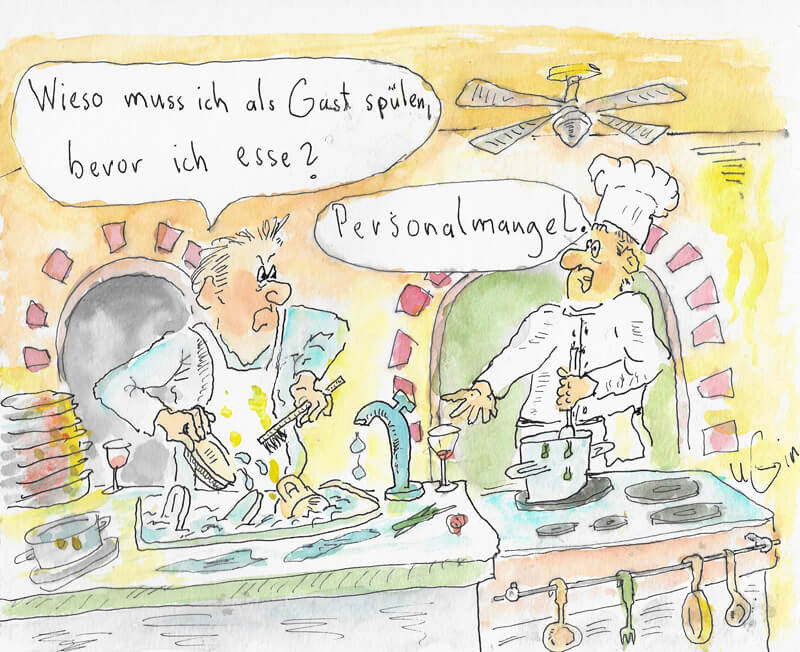 Wieso muss ich als Gast spülen,
bevor ich esse?
Personalmangel.